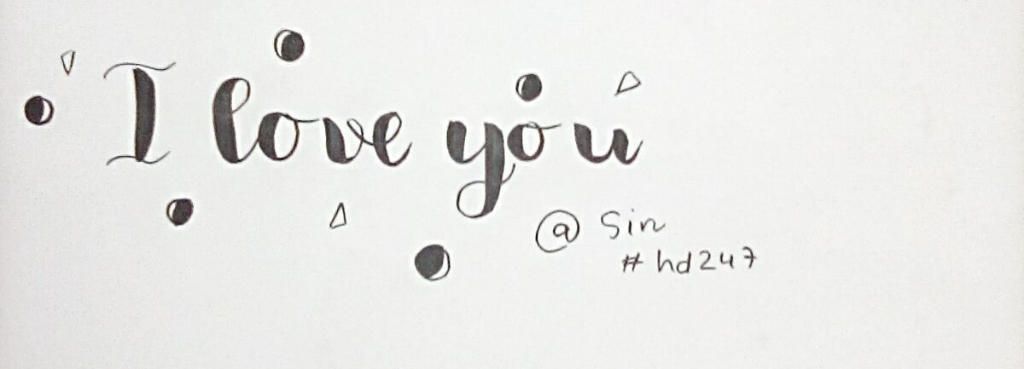 I love you
@ Sin
#hd247